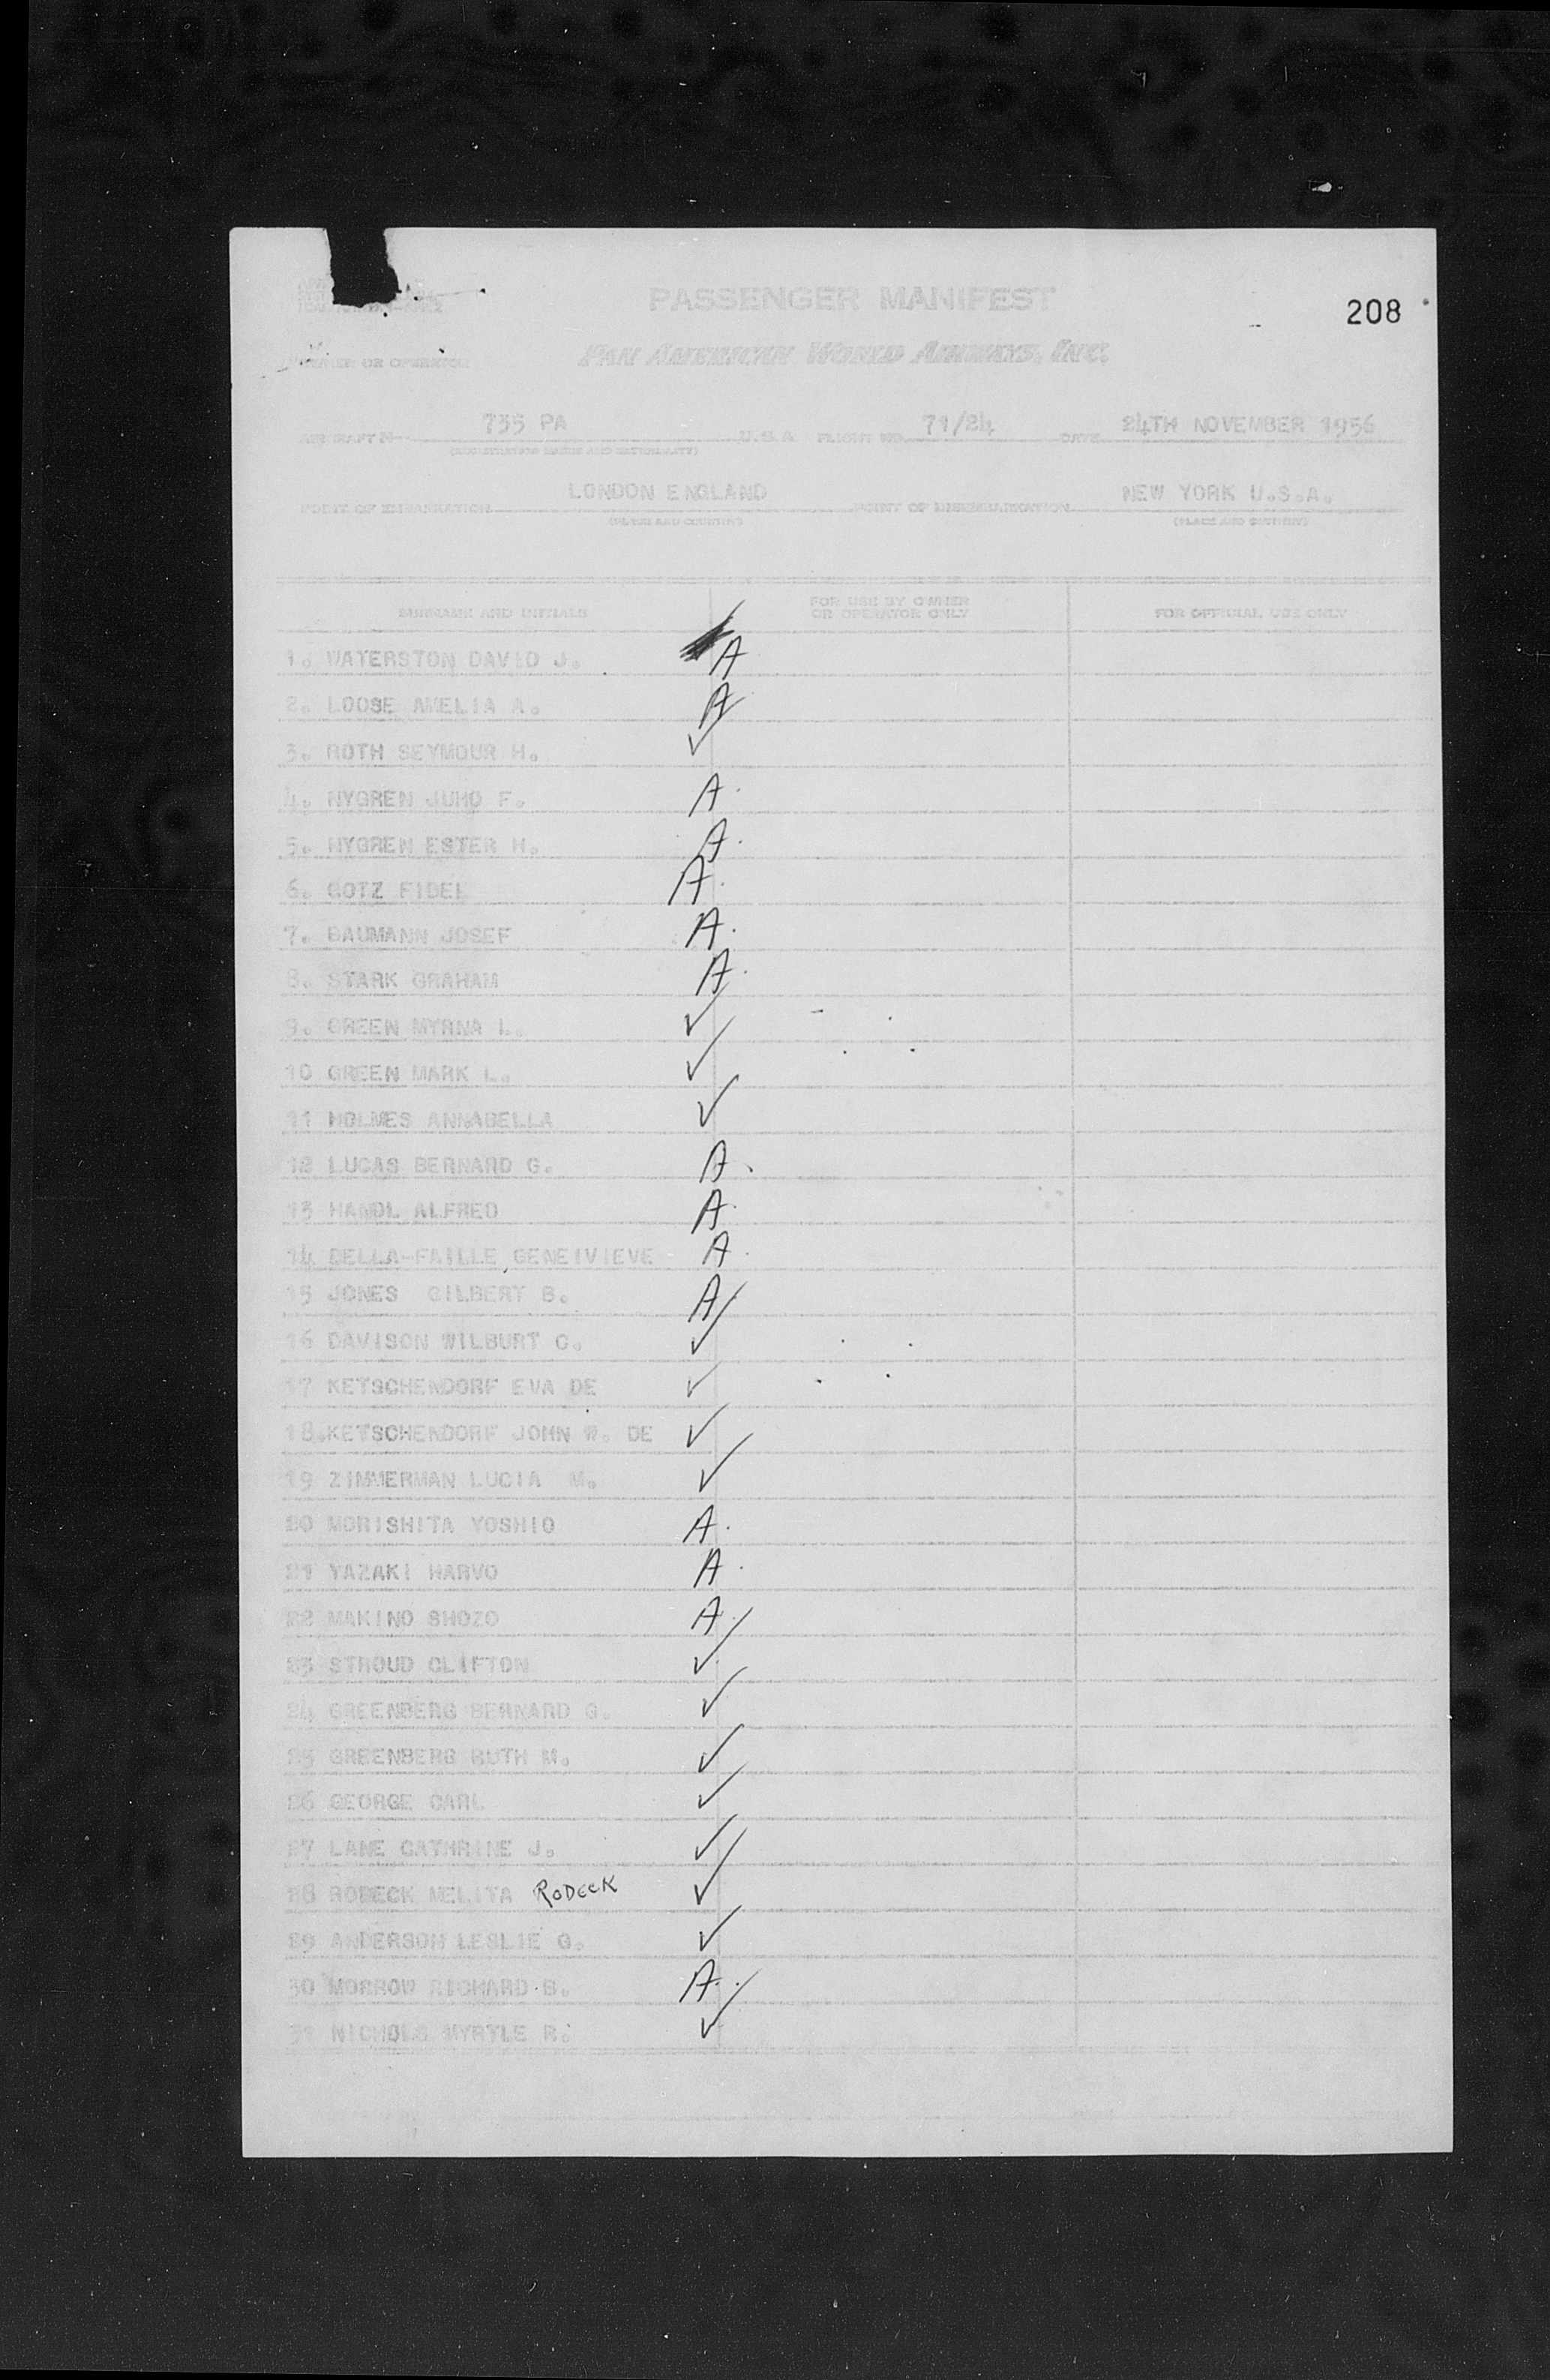 PASSENGER MANIFEST
208
OWNER OR OPERATOR PAN AMERICAN WORLD AIRWAYS, INC.
AIRCRAFT N- 735 PA U.S.A FLIGHT NO. 71/24 DATE 24TH NOVEMBER 1956
(REGISTRATION MARKS AND NATIONALITY)
POINT OF EMBARKATION LONDON ENGLAND POINT OF DISEMBARKATION NEW YORK U.S.A.
(PLACE AND COUNTRY) (PLACE AND COUNTRY)
SURNAME AND INITIALS FOR USE BY OWNER OR OPERATOR ONLY FOR OFFICIAL USE ONLY
1. WATERSTON DAVID J. A
2. LOOSE AMELIA A. A
3. ROTH SEYMOUR H. ✓
4. NYGREN JUHO F. A.
5. NYGREN ESTER H. A.
6. GOTZ FIDEL A.
7. BAUMANN JOSEF A.
8. STARK GRAHAM A.
9. GREEN MYRNA L. ✓
10 GREEN MARK L. ✓
11 HOLMES ANNABELLA ✓
12 LUCAS BERNARD G. A.
13 HANDL ALFRED A.
14 DELLA-FAILLE GENEIVIEVE A.
15 JONES GILBERT B. A
16 DAVISON WILBURT C. ✓
17 KETSCHENDORF EVA DE ✓
18.KETSCHENDORF JOHN W. DE ✓
19 ZIMMERMAN LUCIA M. ✓
20 MORISHITA YOSHIO A.
21 YAZAKI HARVO A.
22 MAKINO SHOZO A.
23 STROUD CLIFTON ✓
24 GREENBERG BERNARD G. ✓
25 GREENBERG RUTH M. ✓
26 GEORGE CARL ✓
27 LANE CATHRINE J. ✓
28 RODECK MELITA RODECK ✓
29 ANDERSON LESLIE G. ✓
30 MORROW RICHARD B. A.
31 NICHOLS MYRTLE R. ✓